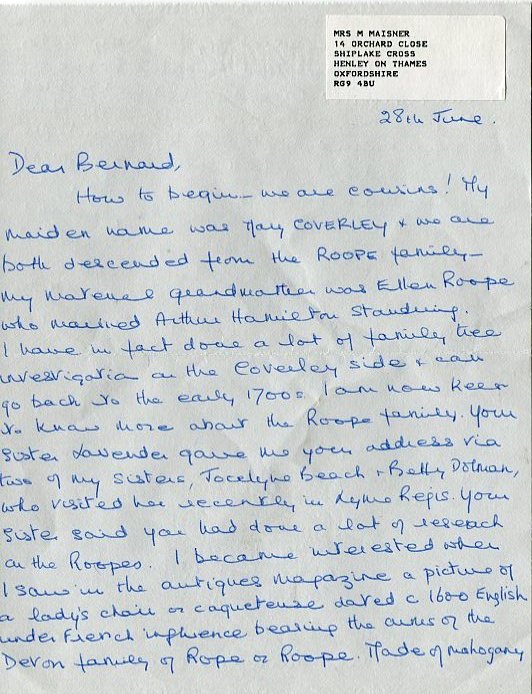 MRS M MAISNER
14 ORCHARD CLOSE
SHIPLAKE CROSS
HENLEY ON THAMES
OXFORDSHIRE
RG9 4BU
28th June.
Dear Bernard,
How to begin - we are cousins! My
maiden name was May COVERLEY & we are
both descended from the ROOPE family -
my maternal grandmother was Ellen Roope
who married Arthur Hamilton Standring.
I have in fact done a lot of family tree
investigation on the Coverley side & can
go back to the early 1700s. I am now keen
to know more about the Roope family. Your
sister Lavender gave me your address via
two of my sisters, Jocelyne Beach & Betty Dolman,
who visited her recently in Lyme Regis. Your
sister said you had done a lot of reseach
on the Roopes. I became interested when
I saw in the antiques magazine a picture of
a lady's chair or caqueteuse dated c 1600 English
under French influence bearing the arms of the
Devon family of Rope or Roope. Made of mahogany